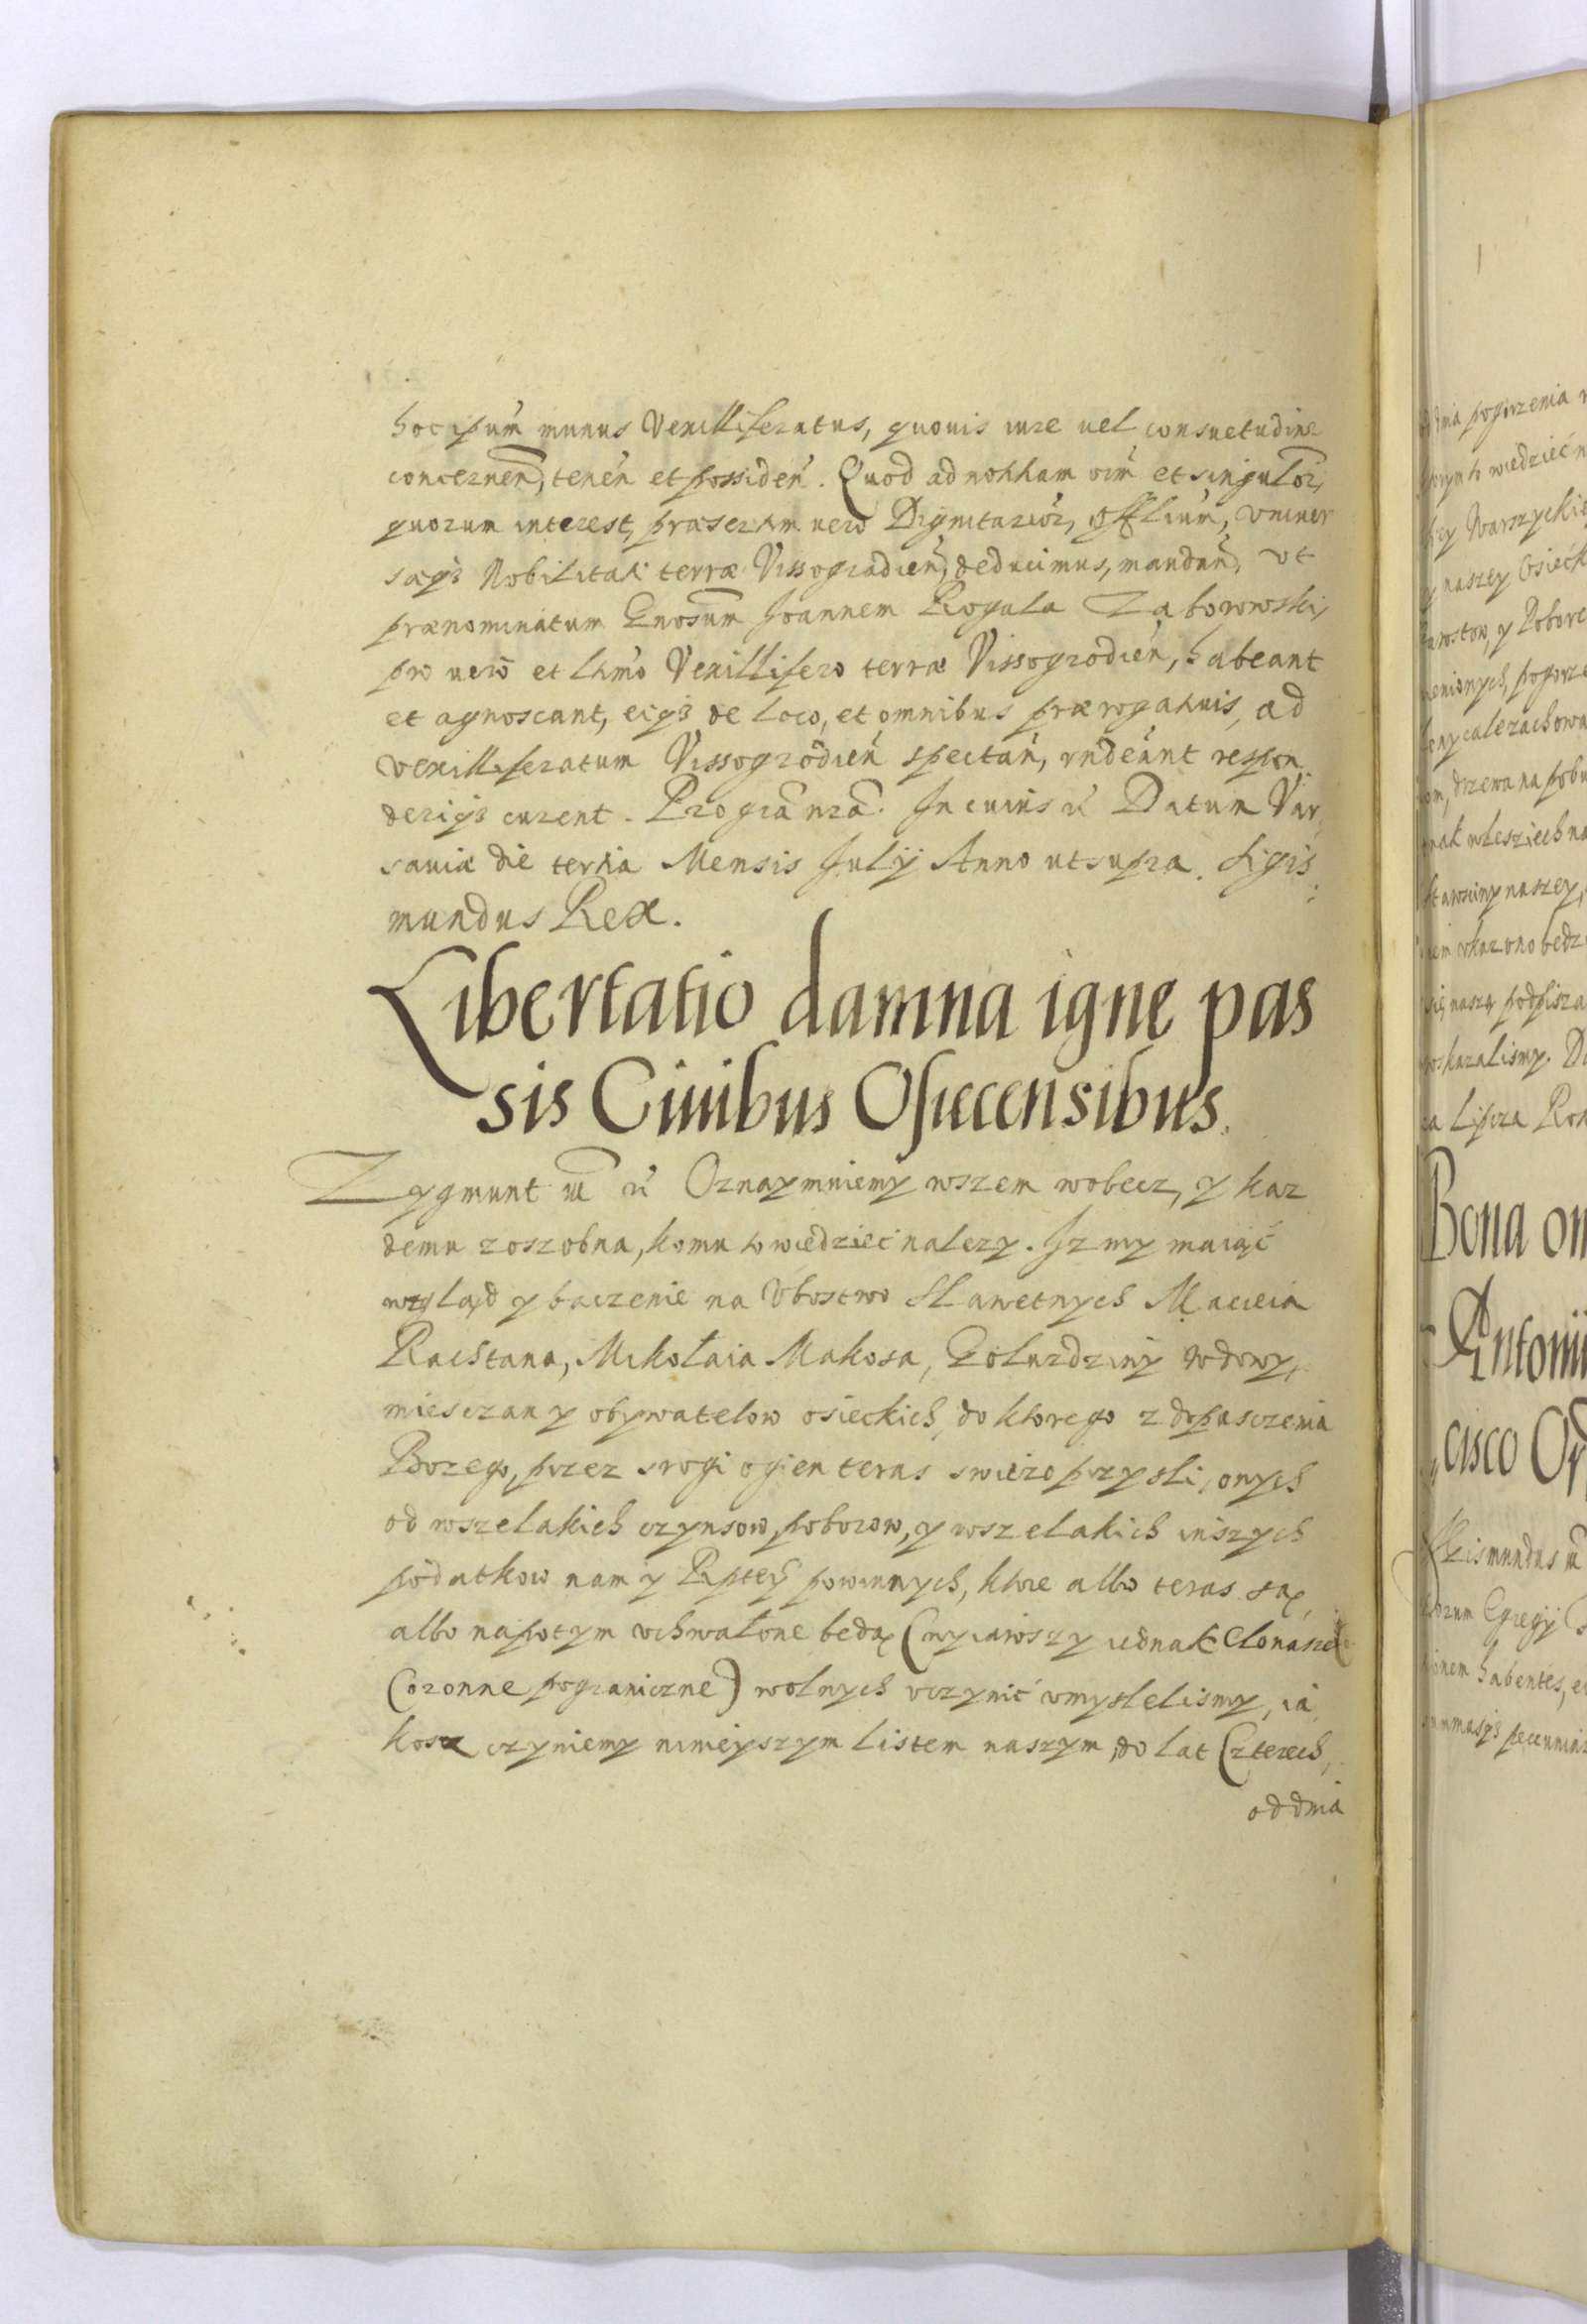 hoc ipsum̃ munus Vexilliferatus, quouis iure uel consuetudine
concerneñ, teneñ et possideñ. Quod ad notitiam oim̃ et singulor̃,
quorum interest, præsertim uero Dignitarior̃, offlium̃, vniuer
sæqʒ Nobilitati terræ Vissogradieñ, deducimus, mandañ, vt
prænominatum Gnosum̃ Joannem Rogala Zaborowski,
pro uero et ltimo Vexillifero terræ Vissogrodieñ, habeant
et agnoscant, eiqʒ de loco, et omnibus prærogatiuis, ad
vexilliferatum Vissogrodieñ spectañ, rndeant respon
deriqʒ curent. Pro gr̃a nr̃a. In cuius rĩ Datum Var
sauiæ die tertia Mensis Julÿ Anno ut supra. Sigis
mundus Rex.
Libertatio damna igne pas
sis Ciuibus Osiecensibus.
Zygmunt III rĩ Oznaymuiemy wszem wobecz, y kaz
demu zoszobna, komu to wiedzieć nalezy. Jz my maiąć
wzgląd y baczenie na Vbostwo Sławetnych Macieia
Rachtana, Mikołaia Makosa, Gołuzdziny wdowy,
miesczan y obywatelow osieckich, do ktorego z dopusczenia
Bozego, przez srogi ogien teras swiezo przysli, onych
od wszelakich czynsow, poborow, y wszelakich inszych
podatkow nam y Rptey powinnych, ktore albo teras są,
albo napotym vchwalone będą (wyiąwszy iednak Cłonasze
Coronne pograniczne) wolnych vczynić vmyslelismy, ia
kosz czyniemy ninieyszym listem naszym, do lat Czterech,
od dnia
dnia pogorzenia
to wiedzieć
Warszycki
naszey Osieck
y Pobor
pogorze
drzewa na pobu
naszey,
vkazono będz
naszą podpisa
Lipca Rok
Bona
Antonii
cisco
Egregÿ
habentes,